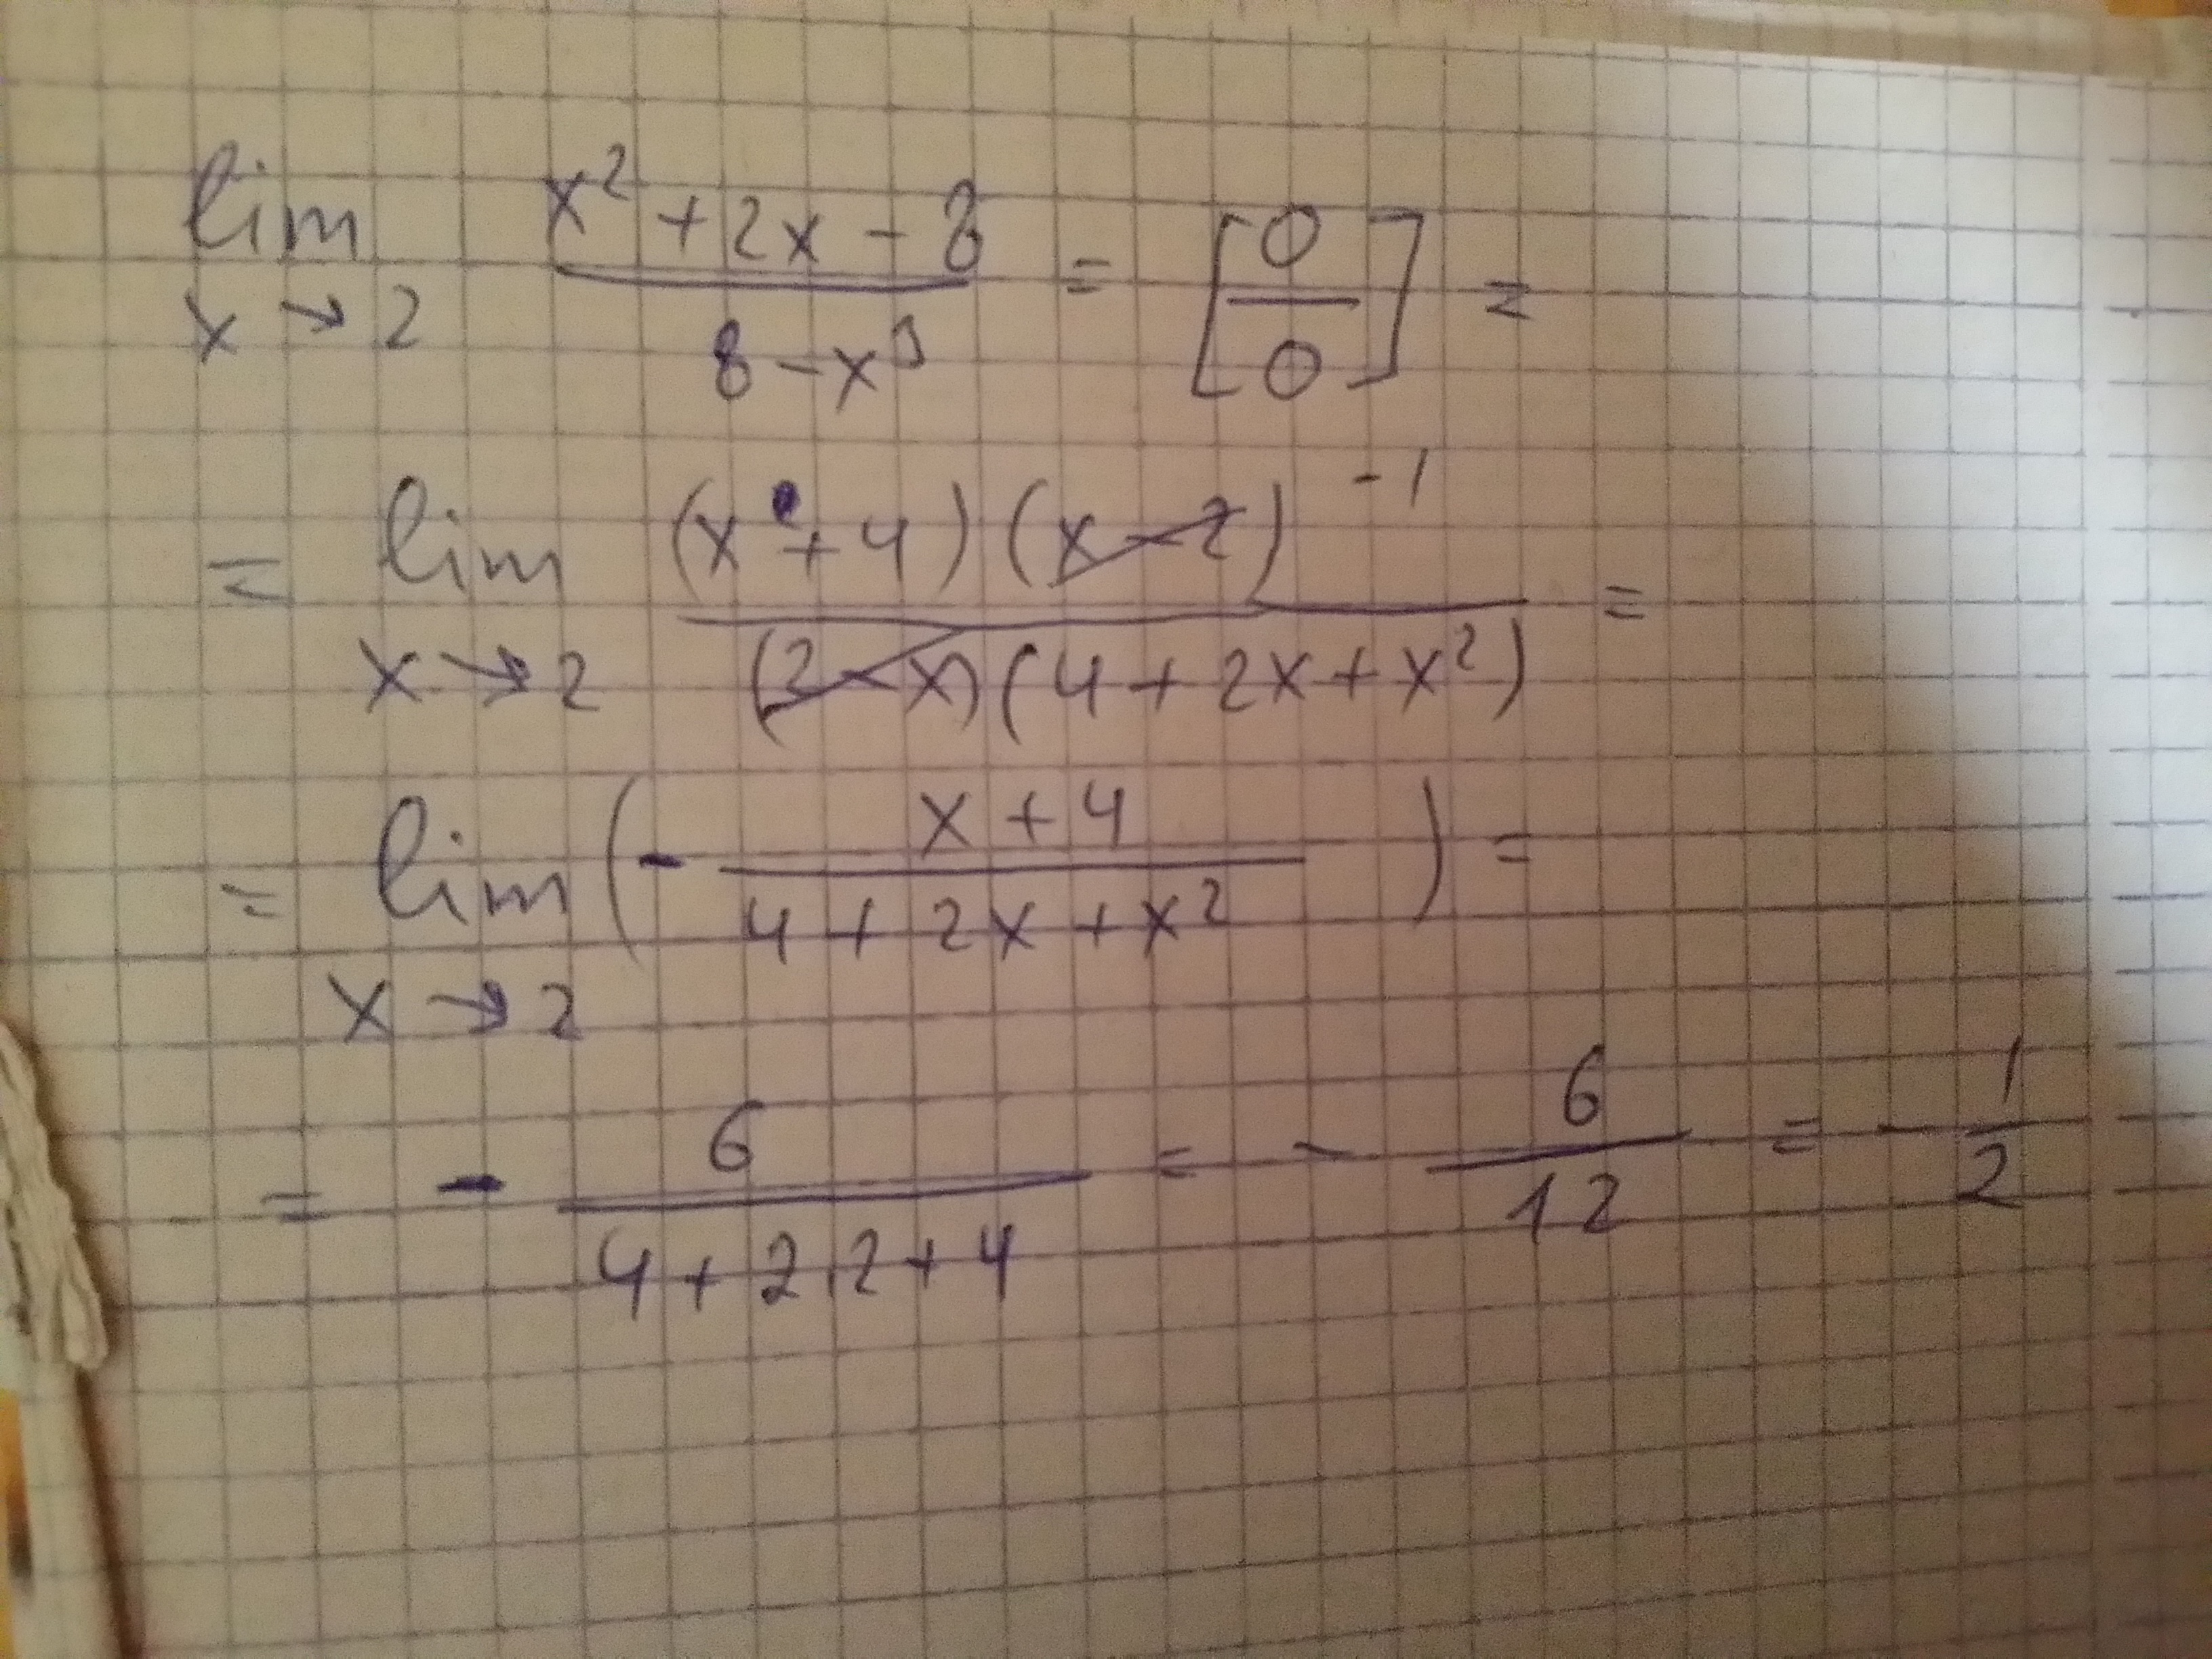 lim x→2 (x² + 2x - 8)/(8 - x³) = [0/0] =
= lim x→2 ((x + 4)(x - 2) -1)/((2 - x)(4 + 2x + x²)) =
= lim x→2 (- (x + 4)/(4 + 2x + x²)) =
= - 6/(4 + 2·2 + 4) = - 6/12 = - 1/2